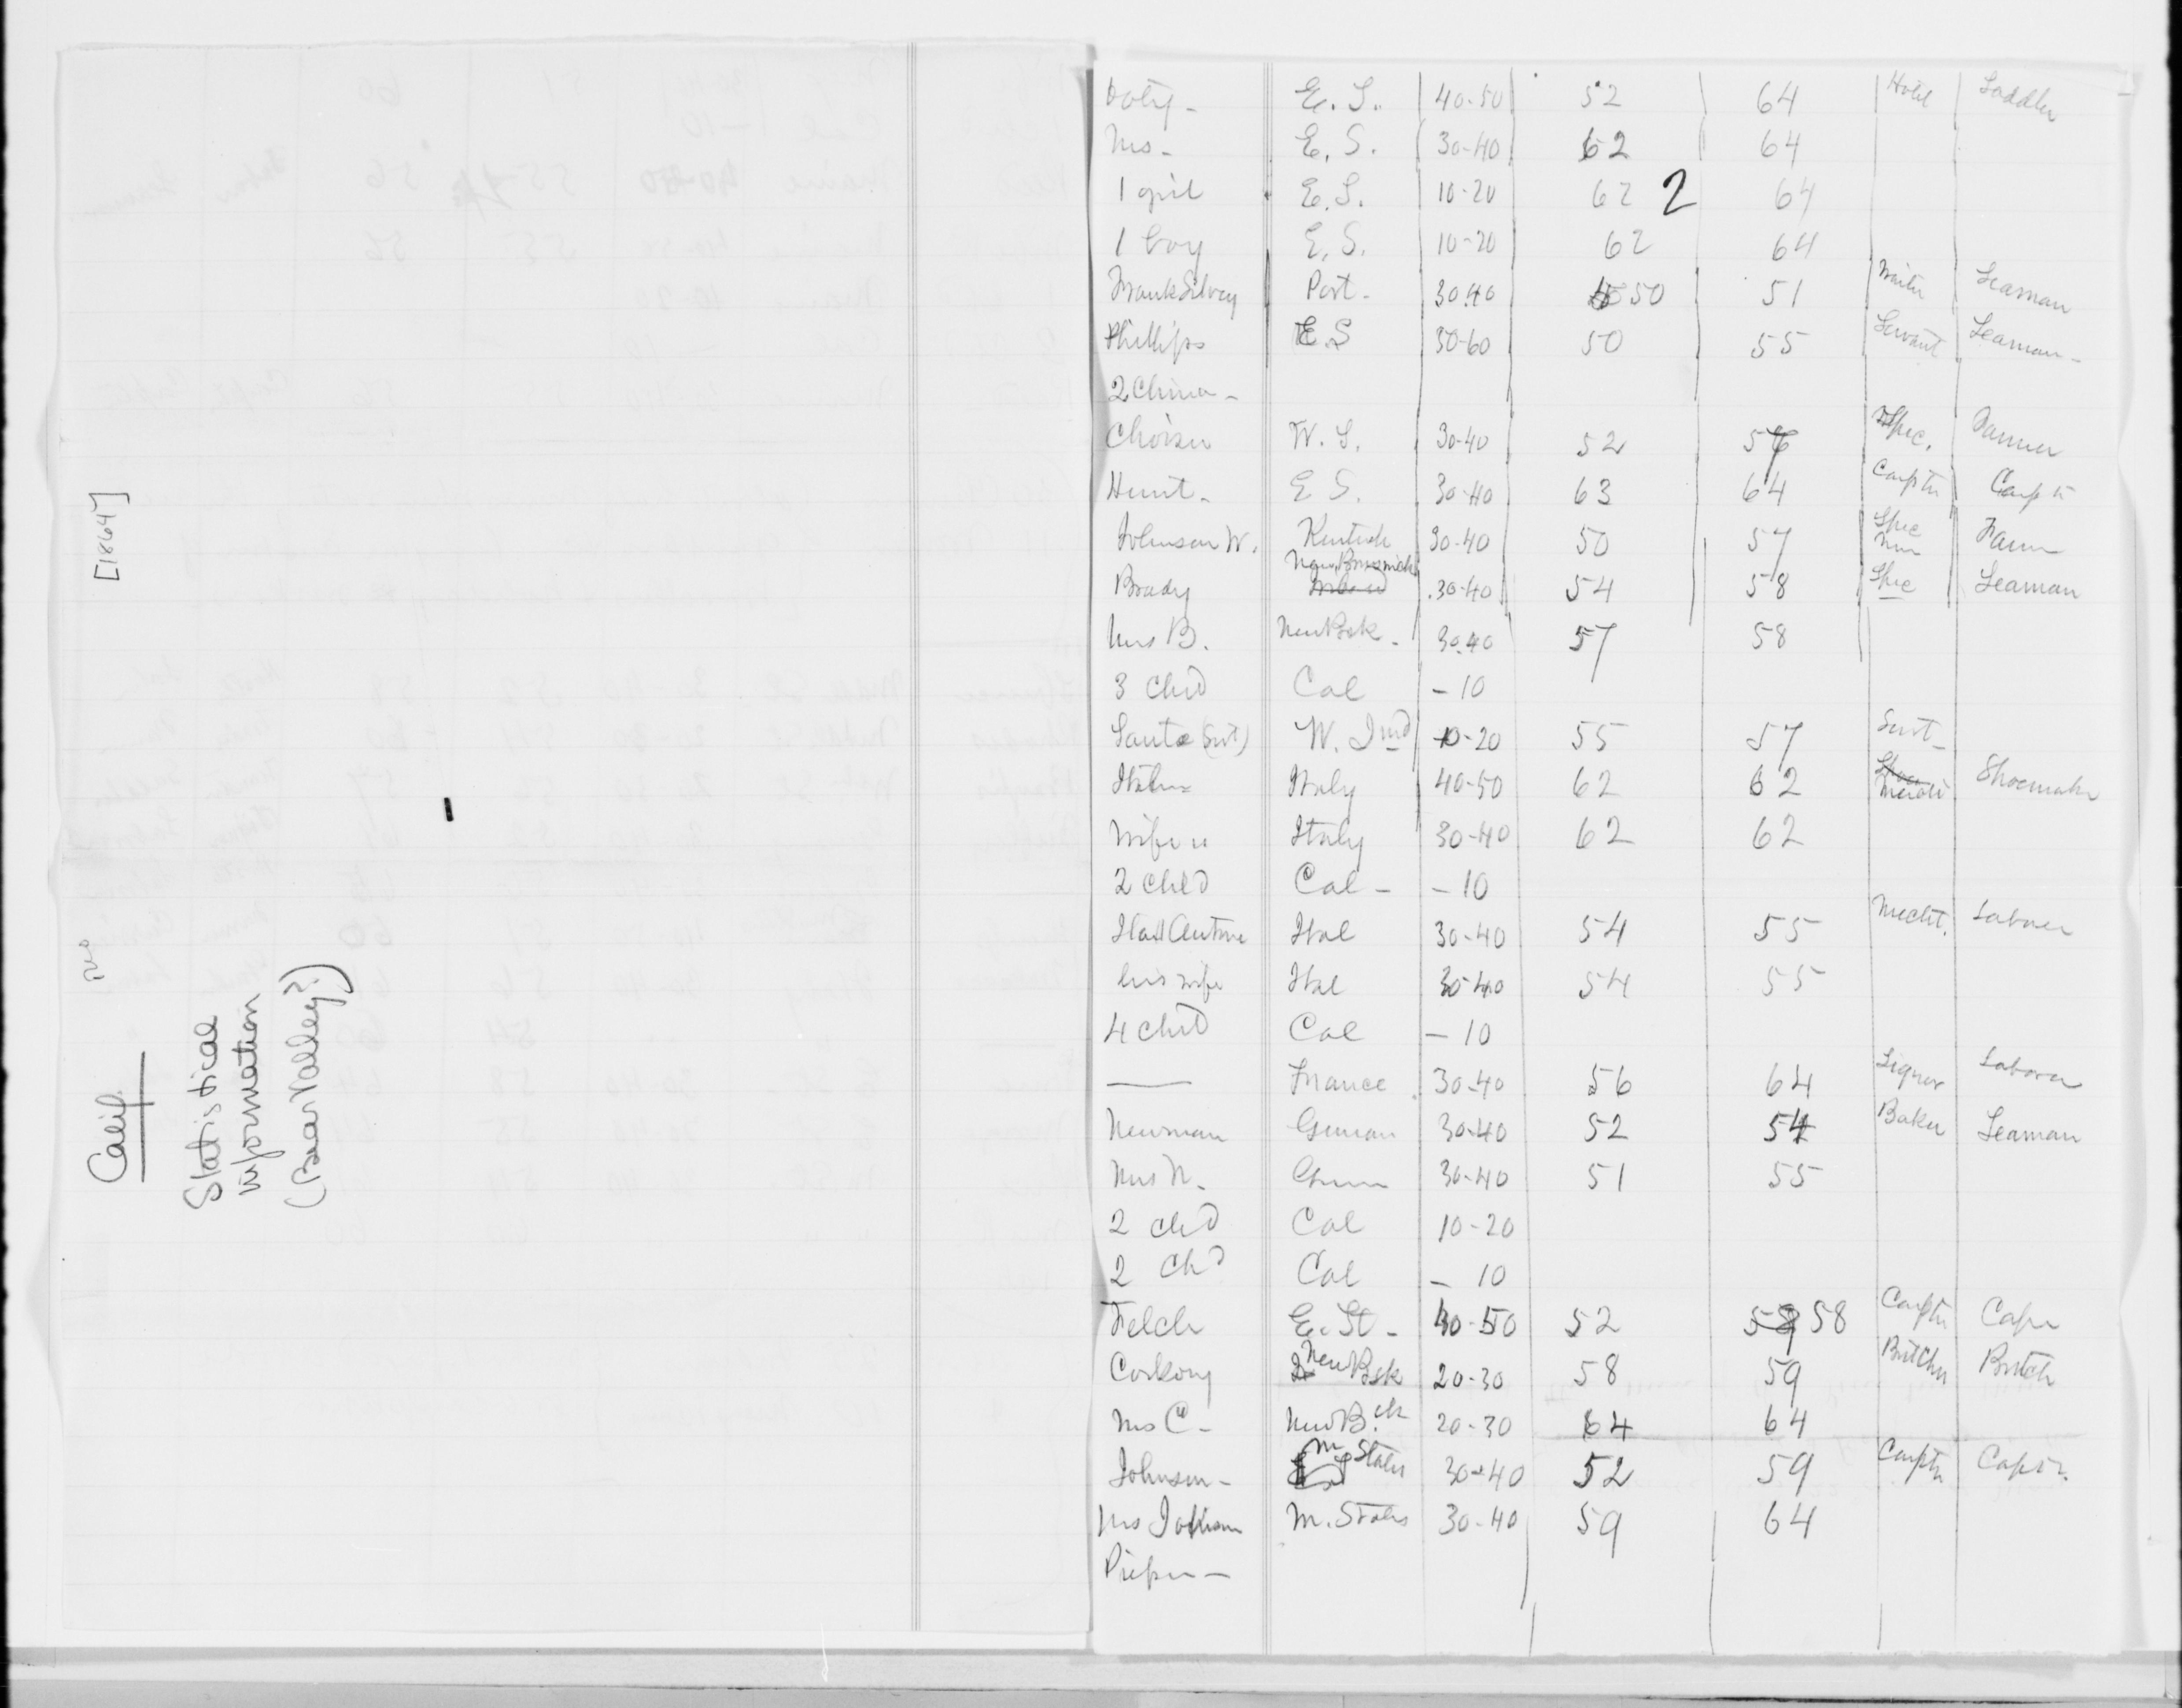 [1864]
Calif.
Statistical
information
(Bear Valley?)
Doty - E. S. 40-50 52 64 Hotel Saddler
Mrs - E. S. 30-40 62 64
1 girl E. S. 10-20 62 2 64
1 boy E. S. 10-20 62 64
Frank Silvey Port - 30.40 50 51 Waiter Seaman
Phillips E. S 30-60 50 55 Servant Seaman -
2 China -
W. S. 30-40 52 57 Spec. Farmer
Hunt - E S. 30-40 63 64 Carptr Carptr
Johnson W. Kentuck 30-40 50 57 Spec Min Farm
Brady New Brunswick 30-40 54 58 Spec Seaman
Mrs B. New Bsk - 30.40 57 58
3 Chd Cal - 10
(Svt) W. Ind 10-20 55 57 Servt -
Italian Italy 40-50 62 62 Shoemakr
Wife " Italy 30-40 62 62
2 Chld Cal - - 10
Ital Antone Ital 30-40 54 55 Mecht. Laborer
his wife Ital 30-40 54 55
4 chld Cal - 10
—— France 30-40 56 64 Liquor Laborer
Newman German 30-40 52 54 Baker Seaman
Mrs N. Germ 30-40 51 55
2 chd Cal 10-20
2 Chd Cal - 10
Felch E. St - 40-50 52 58 Carptr Capr
Corkory New Bsk 20-30 58 59 Butcher Butch
Mrs C - New B. ck 20-30 64 64
Johnson - M States 30-40 52 59 Carptr Captr.
Mrs Johnson M. States 30-40 59 64